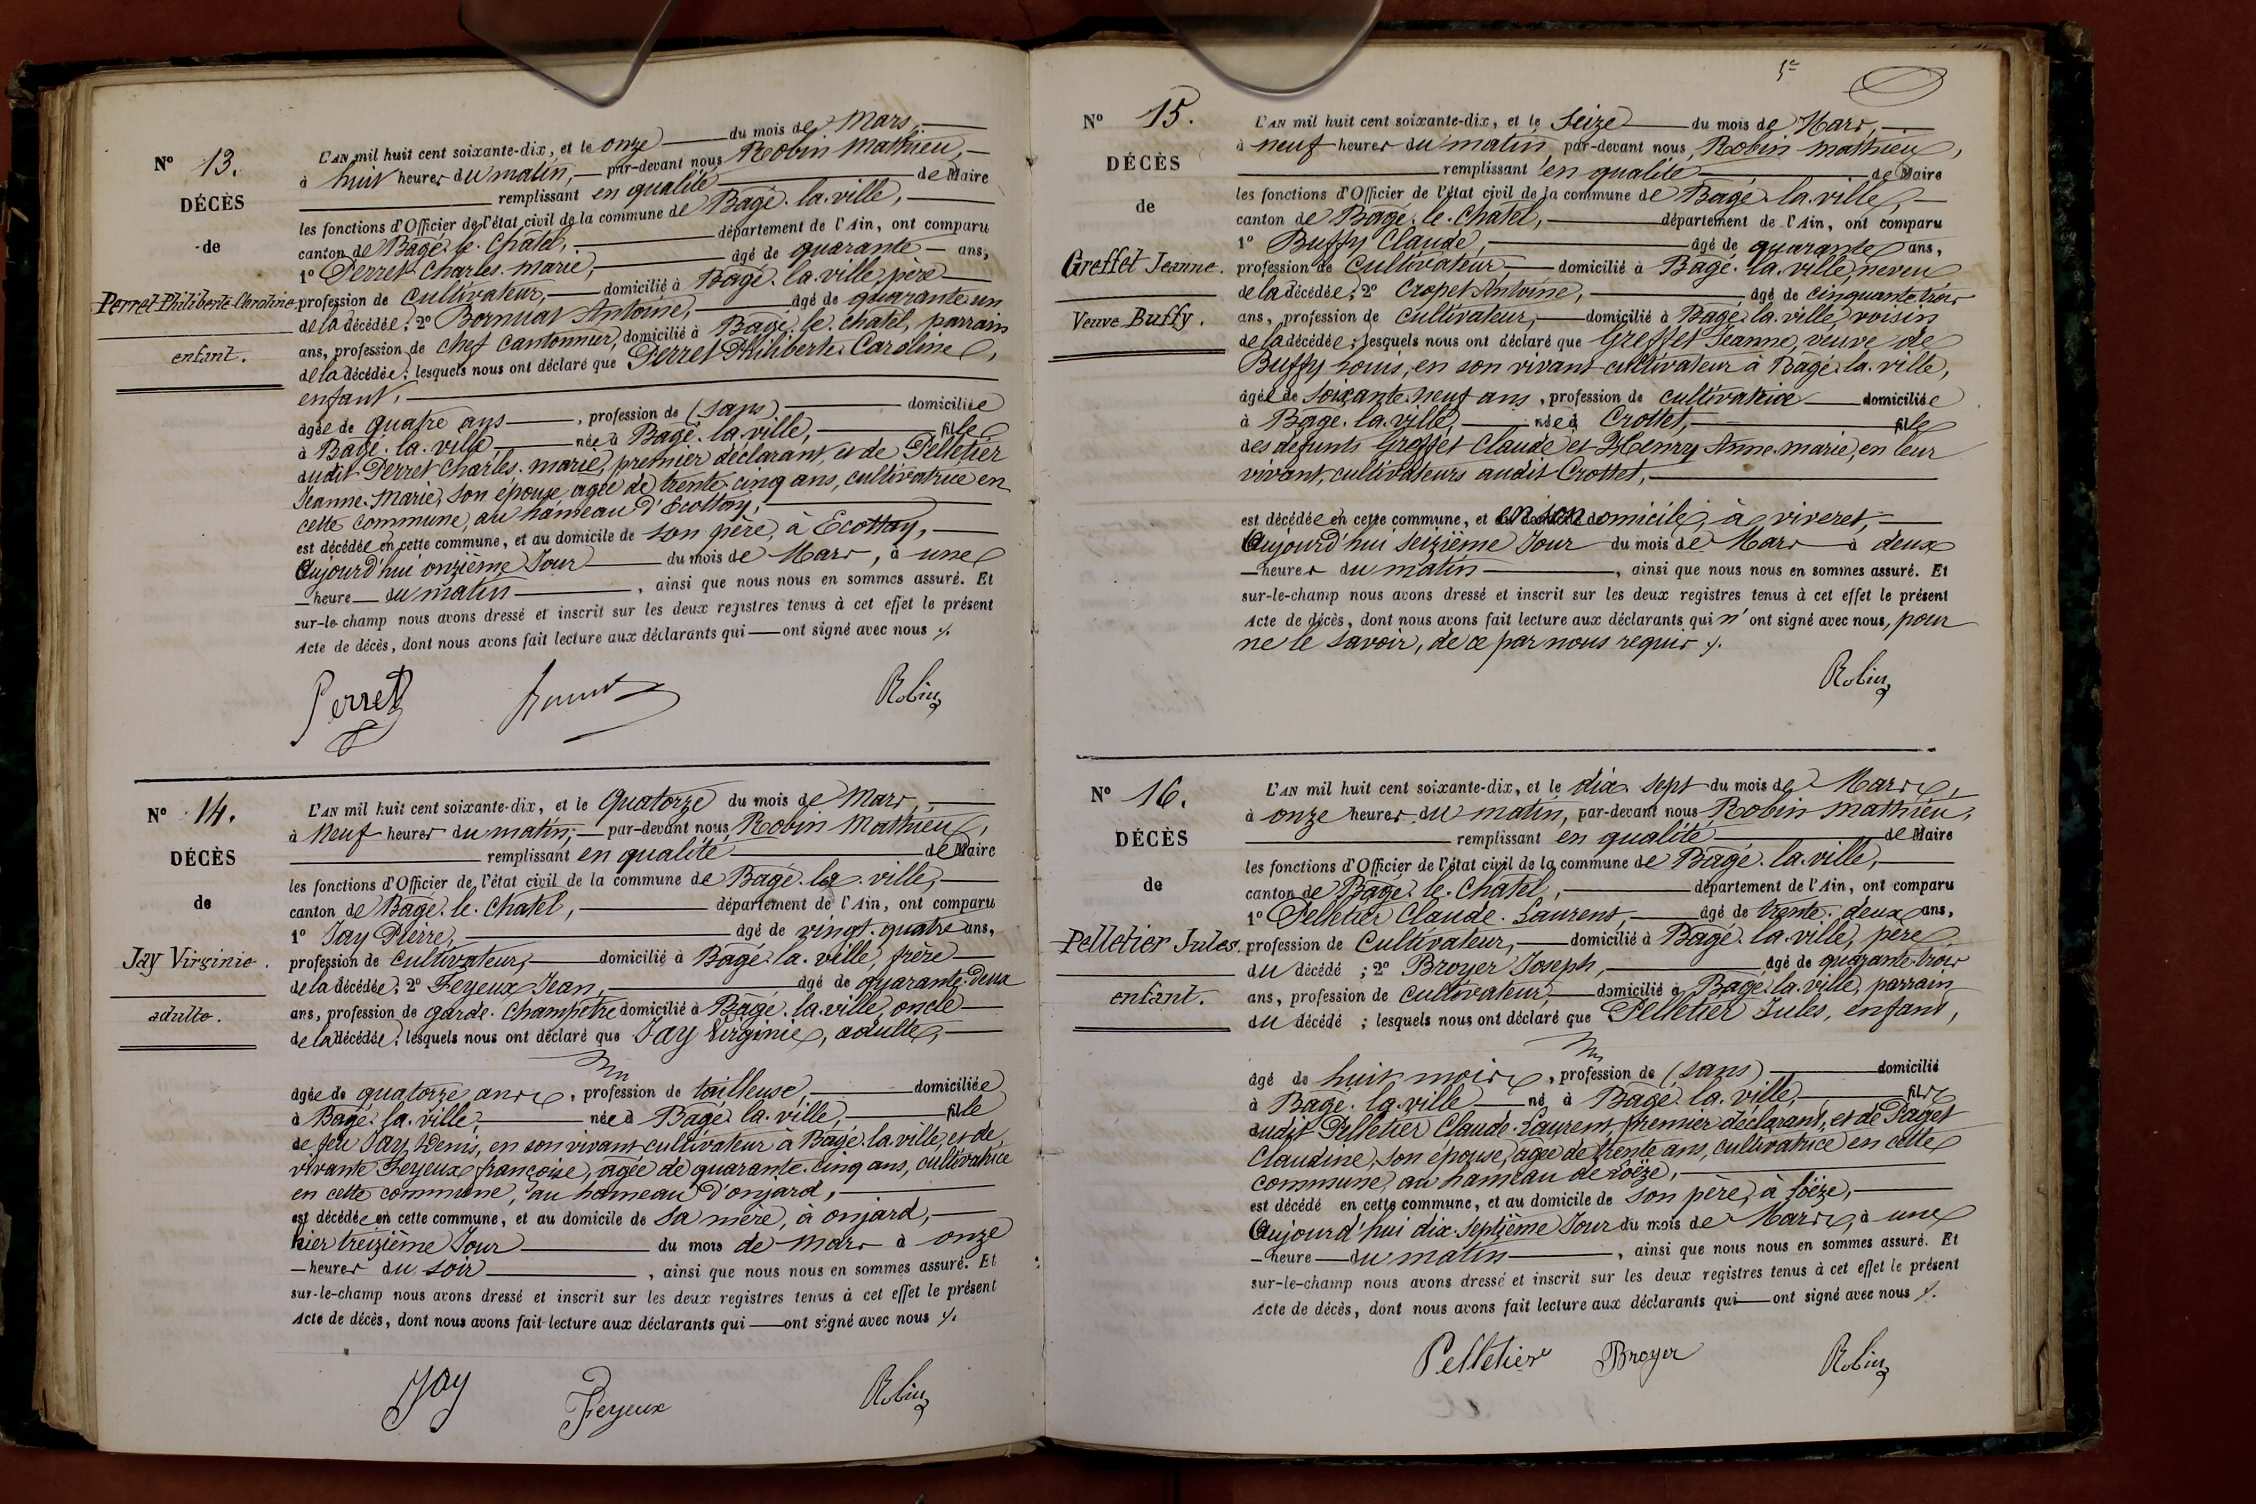 N° 13.
DÉCÈS
de
Perret Philiberte Caroline
enfant.
L'AN mil huit cent soixante-dix, et le onze du mois de Mars,
à huit heures du matin, par-devant nous Robin Mathieu,
remplissant en qualité de Maire
les fonctions d'Officier de l'état civil de la commune de Bâgé-la-ville,
canton de Bâgé-le-Chatel, département de l'Ain, ont comparu
1° Perret Charles-Marie, âgé de quarante ans,
profession de cultivateur, domicilié à Bâgé-la-ville, père
de la décédée; 2° Antoine, âgé de quarante un
ans, profession de chef cantonnier, domicilié à Bâgé-le-chatel, parrain
de la décédée; lesquels nous ont déclaré que Perret Philiberte Caroline,
enfant,
âgée de quatre ans, profession de (sans) domiciliée
à Bâgé-la-ville, née à Bâgé-la-ville, fille
dudit Perret Charles-marie, premier déclarant, et de Pelletier
Jeanne-Marie, son épouse, agée de trente-cinq ans, cultivatrice en
cette commune, au hameau d'Ecottay,
est décédée en cette commune, et au domicile de son père, à Ecottay,
Aujourd'hui onzième Jour du mois de Mars, à une
heure du matin, ainsi que nous nous en sommes assuré. Et
sur-le-champ nous avons dressé et inscrit sur les deux registres tenus à cet effet le présent
Acte de décès, dont nous avons fait lecture aux déclarants qui ont signé avec nous ./.
Perret Robin
N° 14.
DÉCÈS
de
Jay Virginie.
adulte.
L'AN mil huit cent soixante-dix, et le Quatorze du mois de Mars,
à Neuf heures du matin, par-devant nous Robin Mathieu,
remplissant en qualité de Maire
les fonctions d'Officier de l'état civil de la commune de Bâgé-la-ville,
canton de Bâgé-le-Chatel, département de l'Ain, ont comparu
1° Jay Pierre, âgé de vingt-quatre ans,
profession de cultivateur, domicilié à Bâgé-la-ville, frère
de la décédée; 2° Feyeux Jean, âgé de quarante-deux
ans, profession de garde-Champêtre domicilié à Bâgé-la-ville, oncle
de la décédée; lesquels nous ont déclaré que Jay Virginie, adulte,
âgée de quatorze ans, profession de tailleuse, domiciliée
à Bâgé-la-ville, née à Bâgé-la-ville, fille
de feu Jay Denis, en son vivant cultivateur à Bâgé-la-ville, et de
vivante Feyeux françoise, agée de quarante-cinq ans, cultivatrice
en cette commune, au hameau d'onjard,
est décédée en cette commune, et au domicile de sa mère, à onjard,
hier treizième Jour du mois de mars à onze
heures du soir, ainsi que nous nous en sommes assuré. Et
sur-le-champ nous avons dressé et inscrit sur les deux registres tenus à cet effet le présent
Acte de décès, dont nous avons fait lecture aux déclarants qui ont signé avec nous ./.
Jay Feyeux Robin
5e
N° 15.
DÉCÈS
de
Greffet Jeanne.
Veuve Buffy.
L'AN mil huit cent soixante-dix, et le Seize du mois de Mars,
à neuf heures du matin, par-devant nous Robin Mathieu,
remplissant en qualité de Maire
les fonctions d'Officier de l'état civil de la commune de Bâgé-la-ville,
canton de Bâgé-le-Chatel, département de l'Ain, ont comparu
1° Buffy Claude, âgé de quarante ans,
profession de cultivateur, domicilié à Bâgé-la-ville, neveu
de la décédée; 2° Cropet Antoine, âgé de cinquante-trois
ans, profession de cultivateur, domicilié à Bâgé-la-ville, voisin
de la décédée; lesquels nous ont déclaré que Greffet Jeanne, veuve de
Buffy Louis, en son vivant cultivateur à Bâgé-la-ville,
âgée de soixante-neuf ans, profession de cultivatrice domiciliée
à Bâgé-la-ville, née à Crottet, fille
des défunts Greffet Claude et Henry Anne-marie, en leur
vivant, cultivateurs audit Crottet,
est décédée en cette commune, et en son domicile, à viveret,
Aujourd'hui seizième Jour du mois de Mars à deux
heures du matin, ainsi que nous nous en sommes assuré. Et
sur-le-champ nous avons dressé et inscrit sur les deux registres tenus à cet effet le présent
Acte de décès, dont nous avons fait lecture aux déclarants qui n'ont signé avec nous, pour
ne le savoir, de ce par nous requis ./.
Robin
N° 16.
DÉCÈS
de
Pelletier Jules.
enfant.
L'AN mil huit cent soixante-dix, et le dix-sept du mois de Mars,
à onze heures du matin, par-devant nous Robin Mathieu,
remplissant en qualité de Maire
les fonctions d'Officier de l'état civil de la commune de Bâgé-la-ville,
canton de Bâgé-le-Chatel, département de l'Ain, ont comparu
1° Pelletier Claude-Laurent, âgé de trente-deux ans,
profession de cultivateur, domicilié à Bâgé-la-ville, père
du décédé; 2° Broyer Joseph, âgé de quarante-trois
ans, profession de cultivateur, domicilié à Bâgé-la-ville, parrain
du décédé; lesquels nous ont déclaré que Pelletier Jules, enfant,
âgé de huit mois, profession de (sans) domicilié
à Bâgé-la-ville né à Bâgé-la-ville, fils
dudit Pelletier Claude-Laurent, premier déclarant, et de Paget
Claudine, son épouse, agée de trente ans, cultivatrice en cette
commune, au hameau de Loëze,
est décédé en cette commune, et au domicile de son père, à Loëze,
Aujourd'hui dix-septième Jour du mois de Mars, à une
heure du matin, ainsi que nous nous en sommes assuré. Et
sur-le-champ nous avons dressé et inscrit sur les deux registres tenus à cet effet le présent
Acte de décès, dont nous avons fait lecture aux déclarants qui ont signé avec nous ./.
Pelletier Broyer Robin